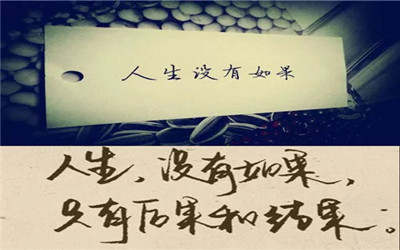 人生没有如果
人生，没有如果，
只有后果和结果。